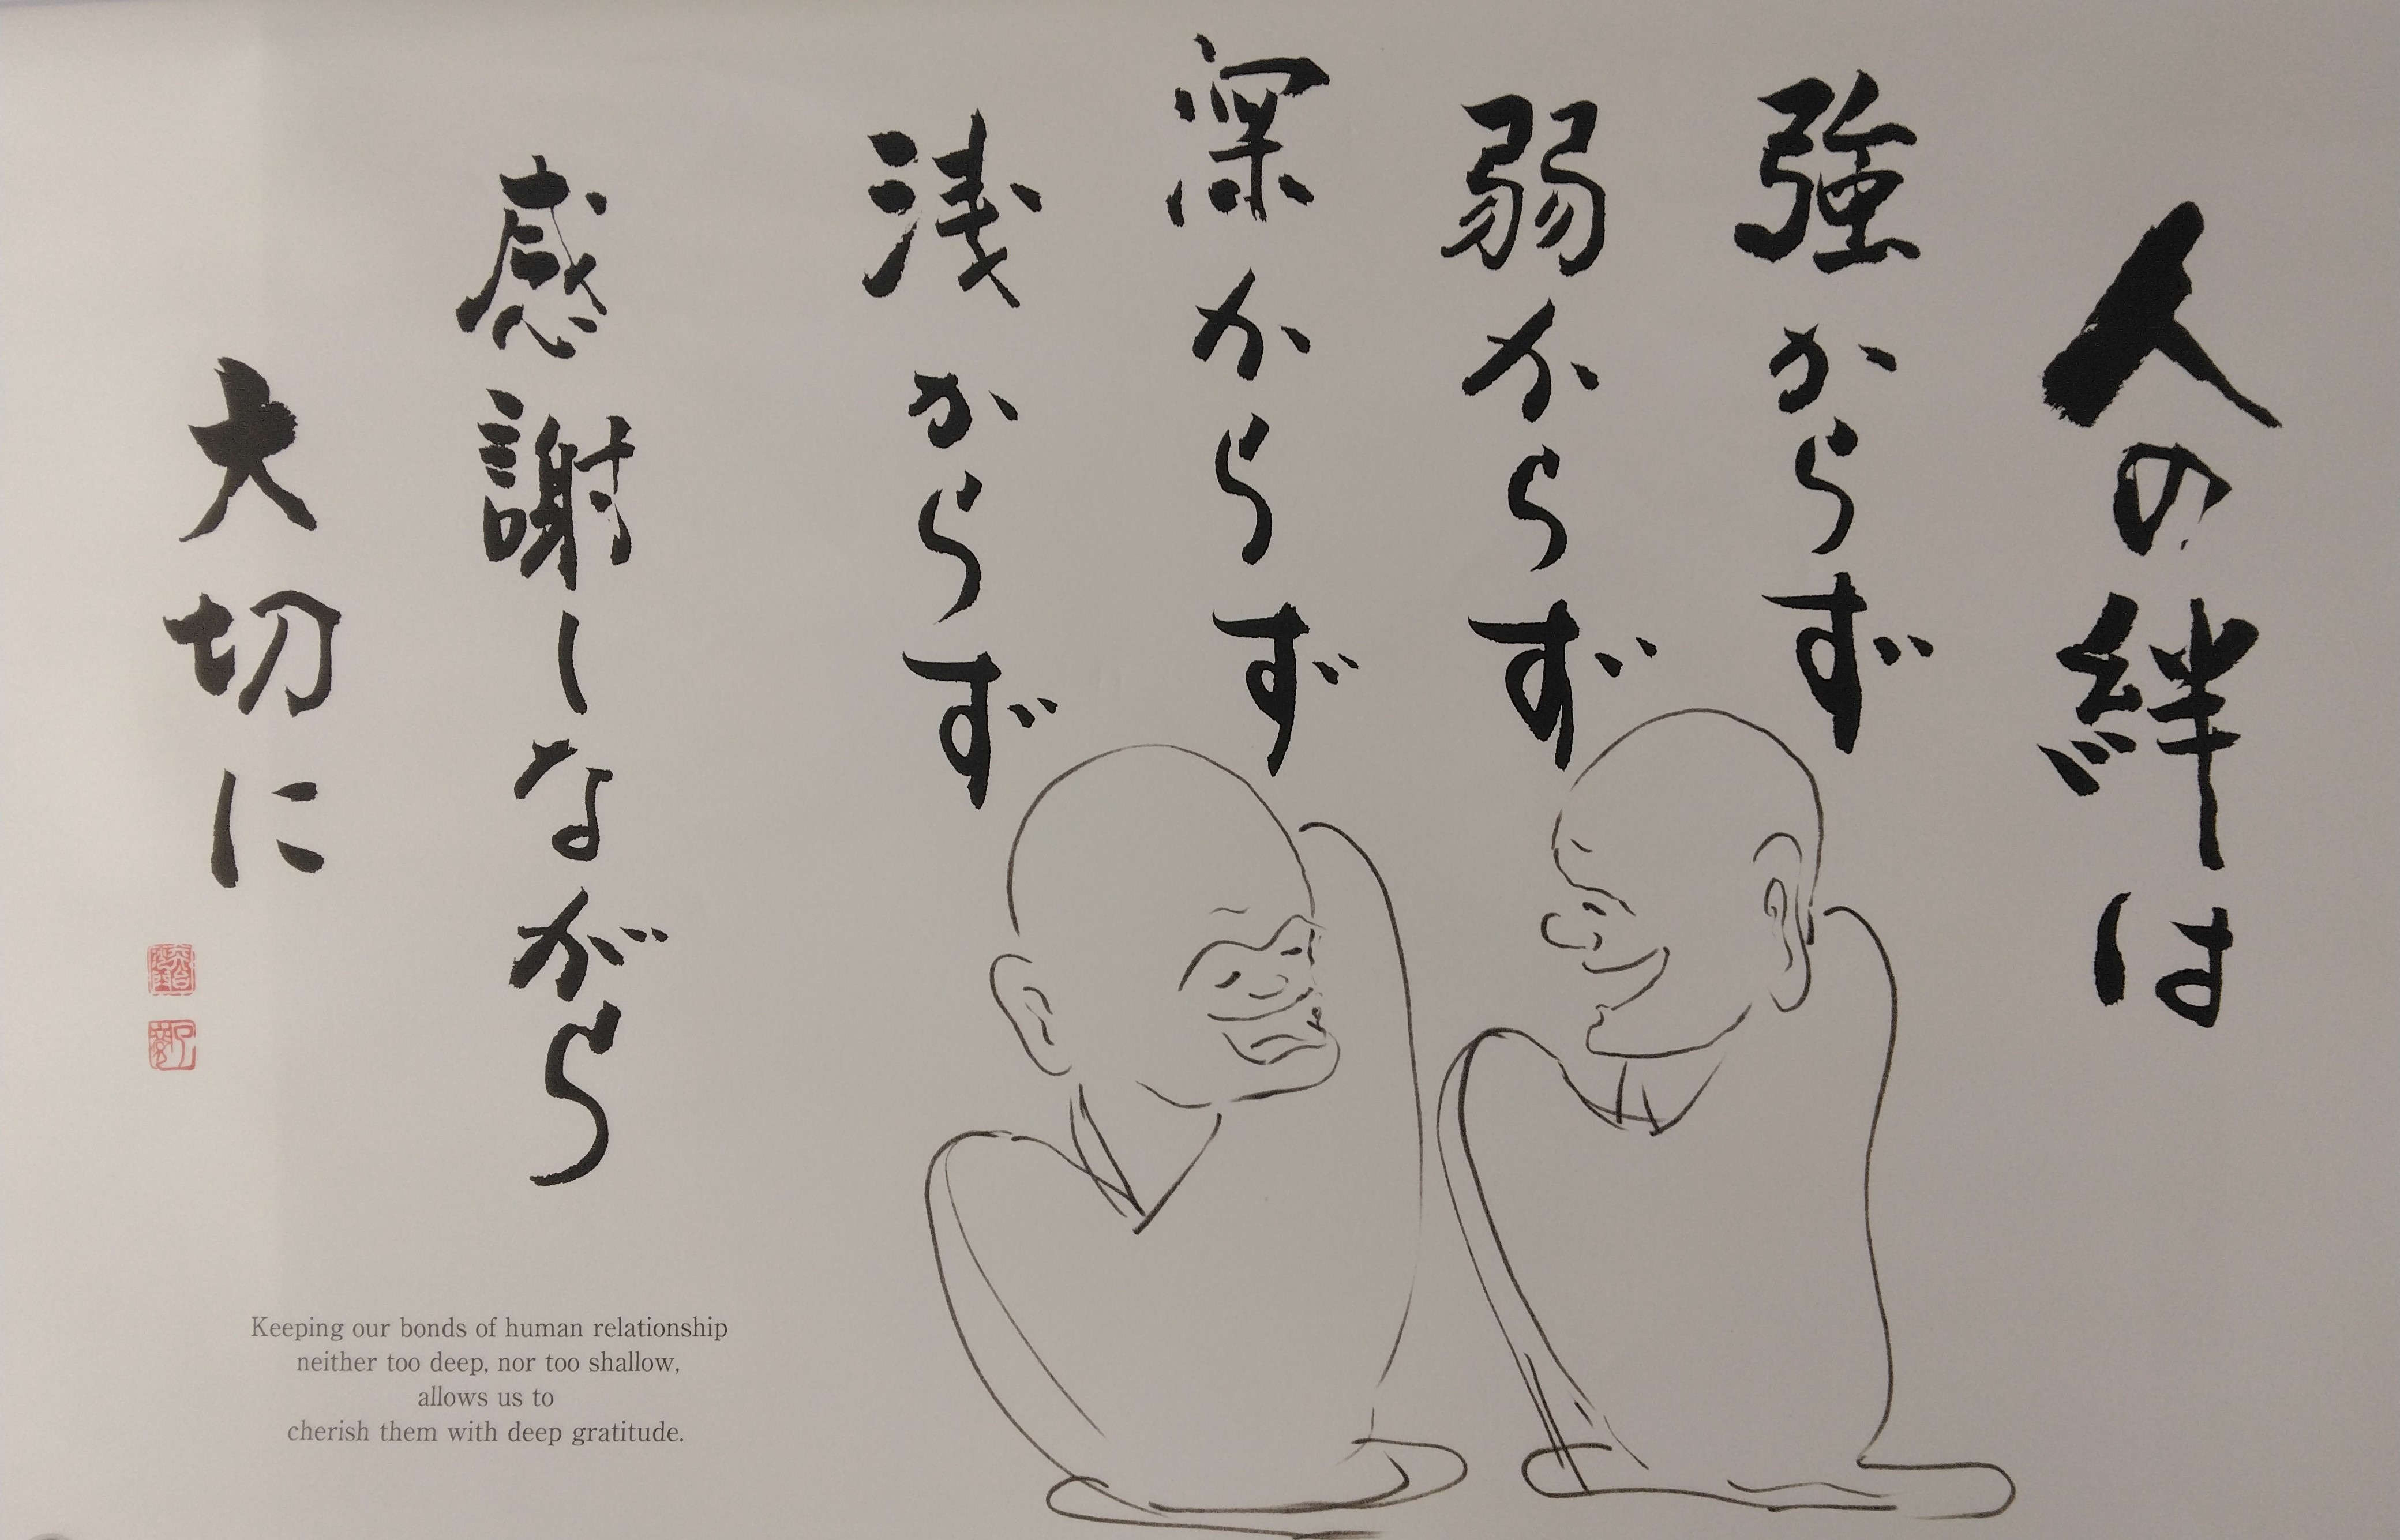 人の絆は
強からず
弱からず
深からず
浅からず
感謝しながら
大切に
Keeping our bonds of human relationship
neither too deep, nor too shallow,
allows us to
cherish them with deep gratitude.